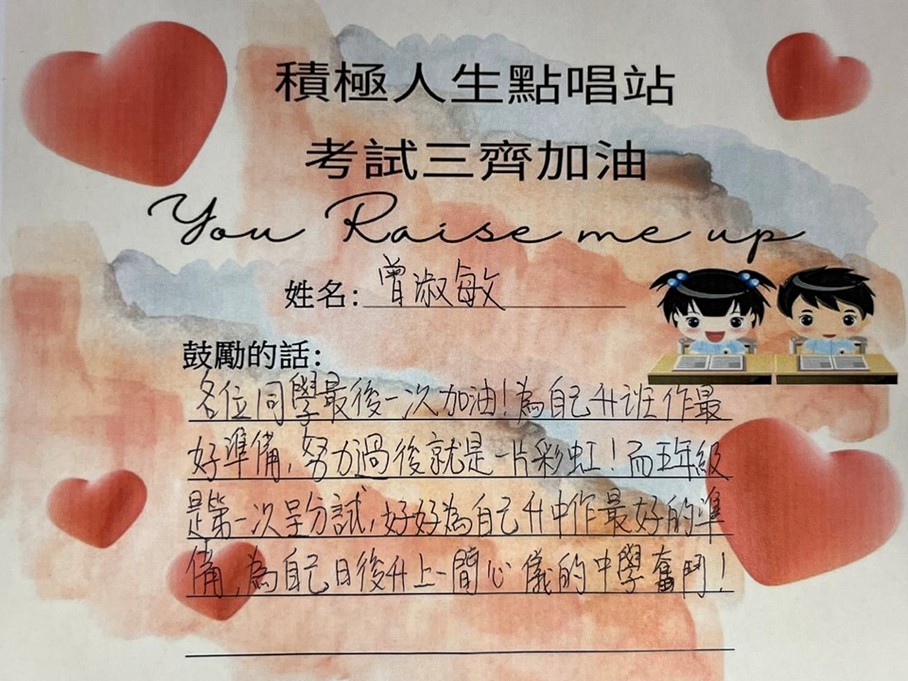 積極人生點唱站
考試三齊加油
You Raise me up
姓名：曾淑敏
鼓勵的話：
各位同學最後一次加油！為自己升班作最
好準備，努力過後就是一片彩虹！而五年級
是第一次呈分試，好好為自己升中作最好的準
備，為自己日後升上一間心儀的中學奮鬥！